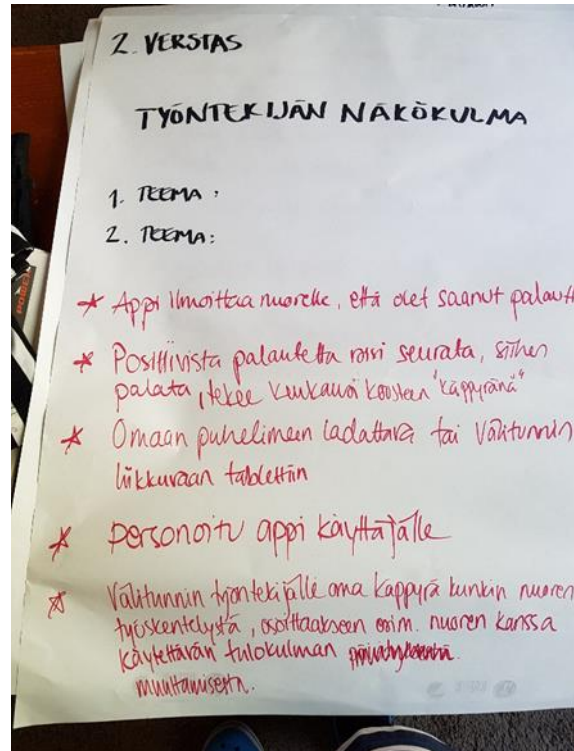 2. VERSTAS
TYÖNTEKIJÄN NÄKÖKULMA
1. TEEMA:
2. TEEMA:
* Appi ilmoittaa nuorelle, että olet saanut palautt
* Positiivista palautetta voisi seurata, siihen
palata, tekee kuukausi koosteen "käppyränä"
* Omaan puhelimeen ladattava tai Välitunnin
liikkuvaan tablettiin
* personoitu appi käyttäjälle
* Välitunnin työntekijälle oma käppyrä kunkin nuoren
työskentelystä, osoittaakseen esim. nuoren kanssa
käytettävän tulokulman
muuttamisesta.